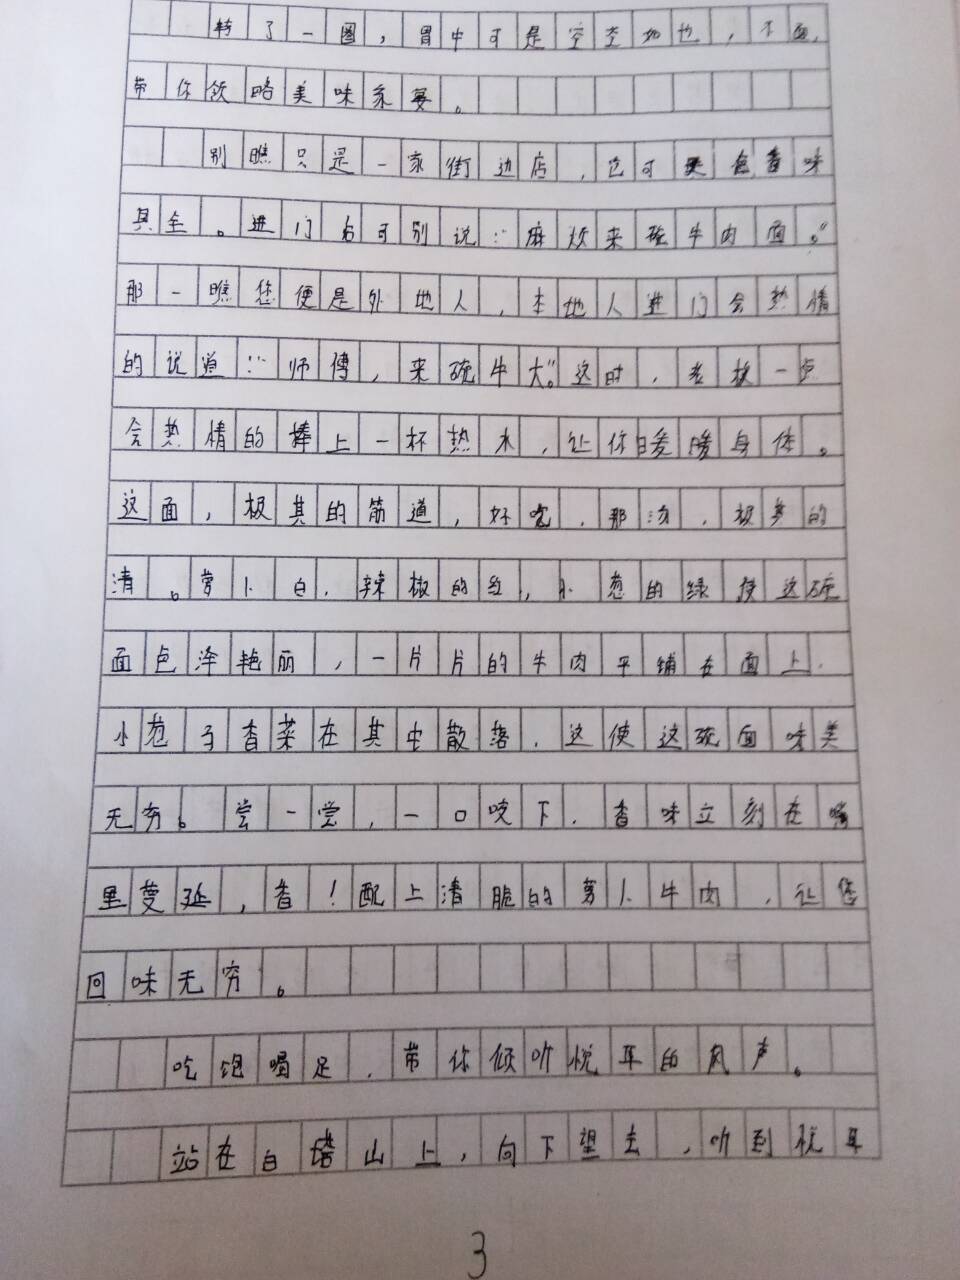 转了一圈，胃中可是空空如也，不急，
带你领略美味家宴。
别瞧只是一家街边店，它可是色香味
具全。进门后可别说：“麻烦来碗牛肉面。”
那一瞧您便是外地人，本地人进门会热情
的说道：“师傅，来碗牛大。”这时，老板一定
会热情的捧上一杯热水，让你暖暖身体。
这面，极其的筋道，好吃，那汤，极其的
清。萝卜白，辣椒的红，小葱的绿使这碗
面色泽艳丽，一片片的牛肉平铺在面上，
小葱子香菜在其中散落，这使这碗面味美
无穷。尝一尝，一口咬下，香味立刻在嘴
里蔓延，香！配上清脆的萝卜牛肉，让您
回味无穷。
吃饱喝足，带你倾听悦耳的风声。
站在白塔山上，向下望去，听到悦耳
3